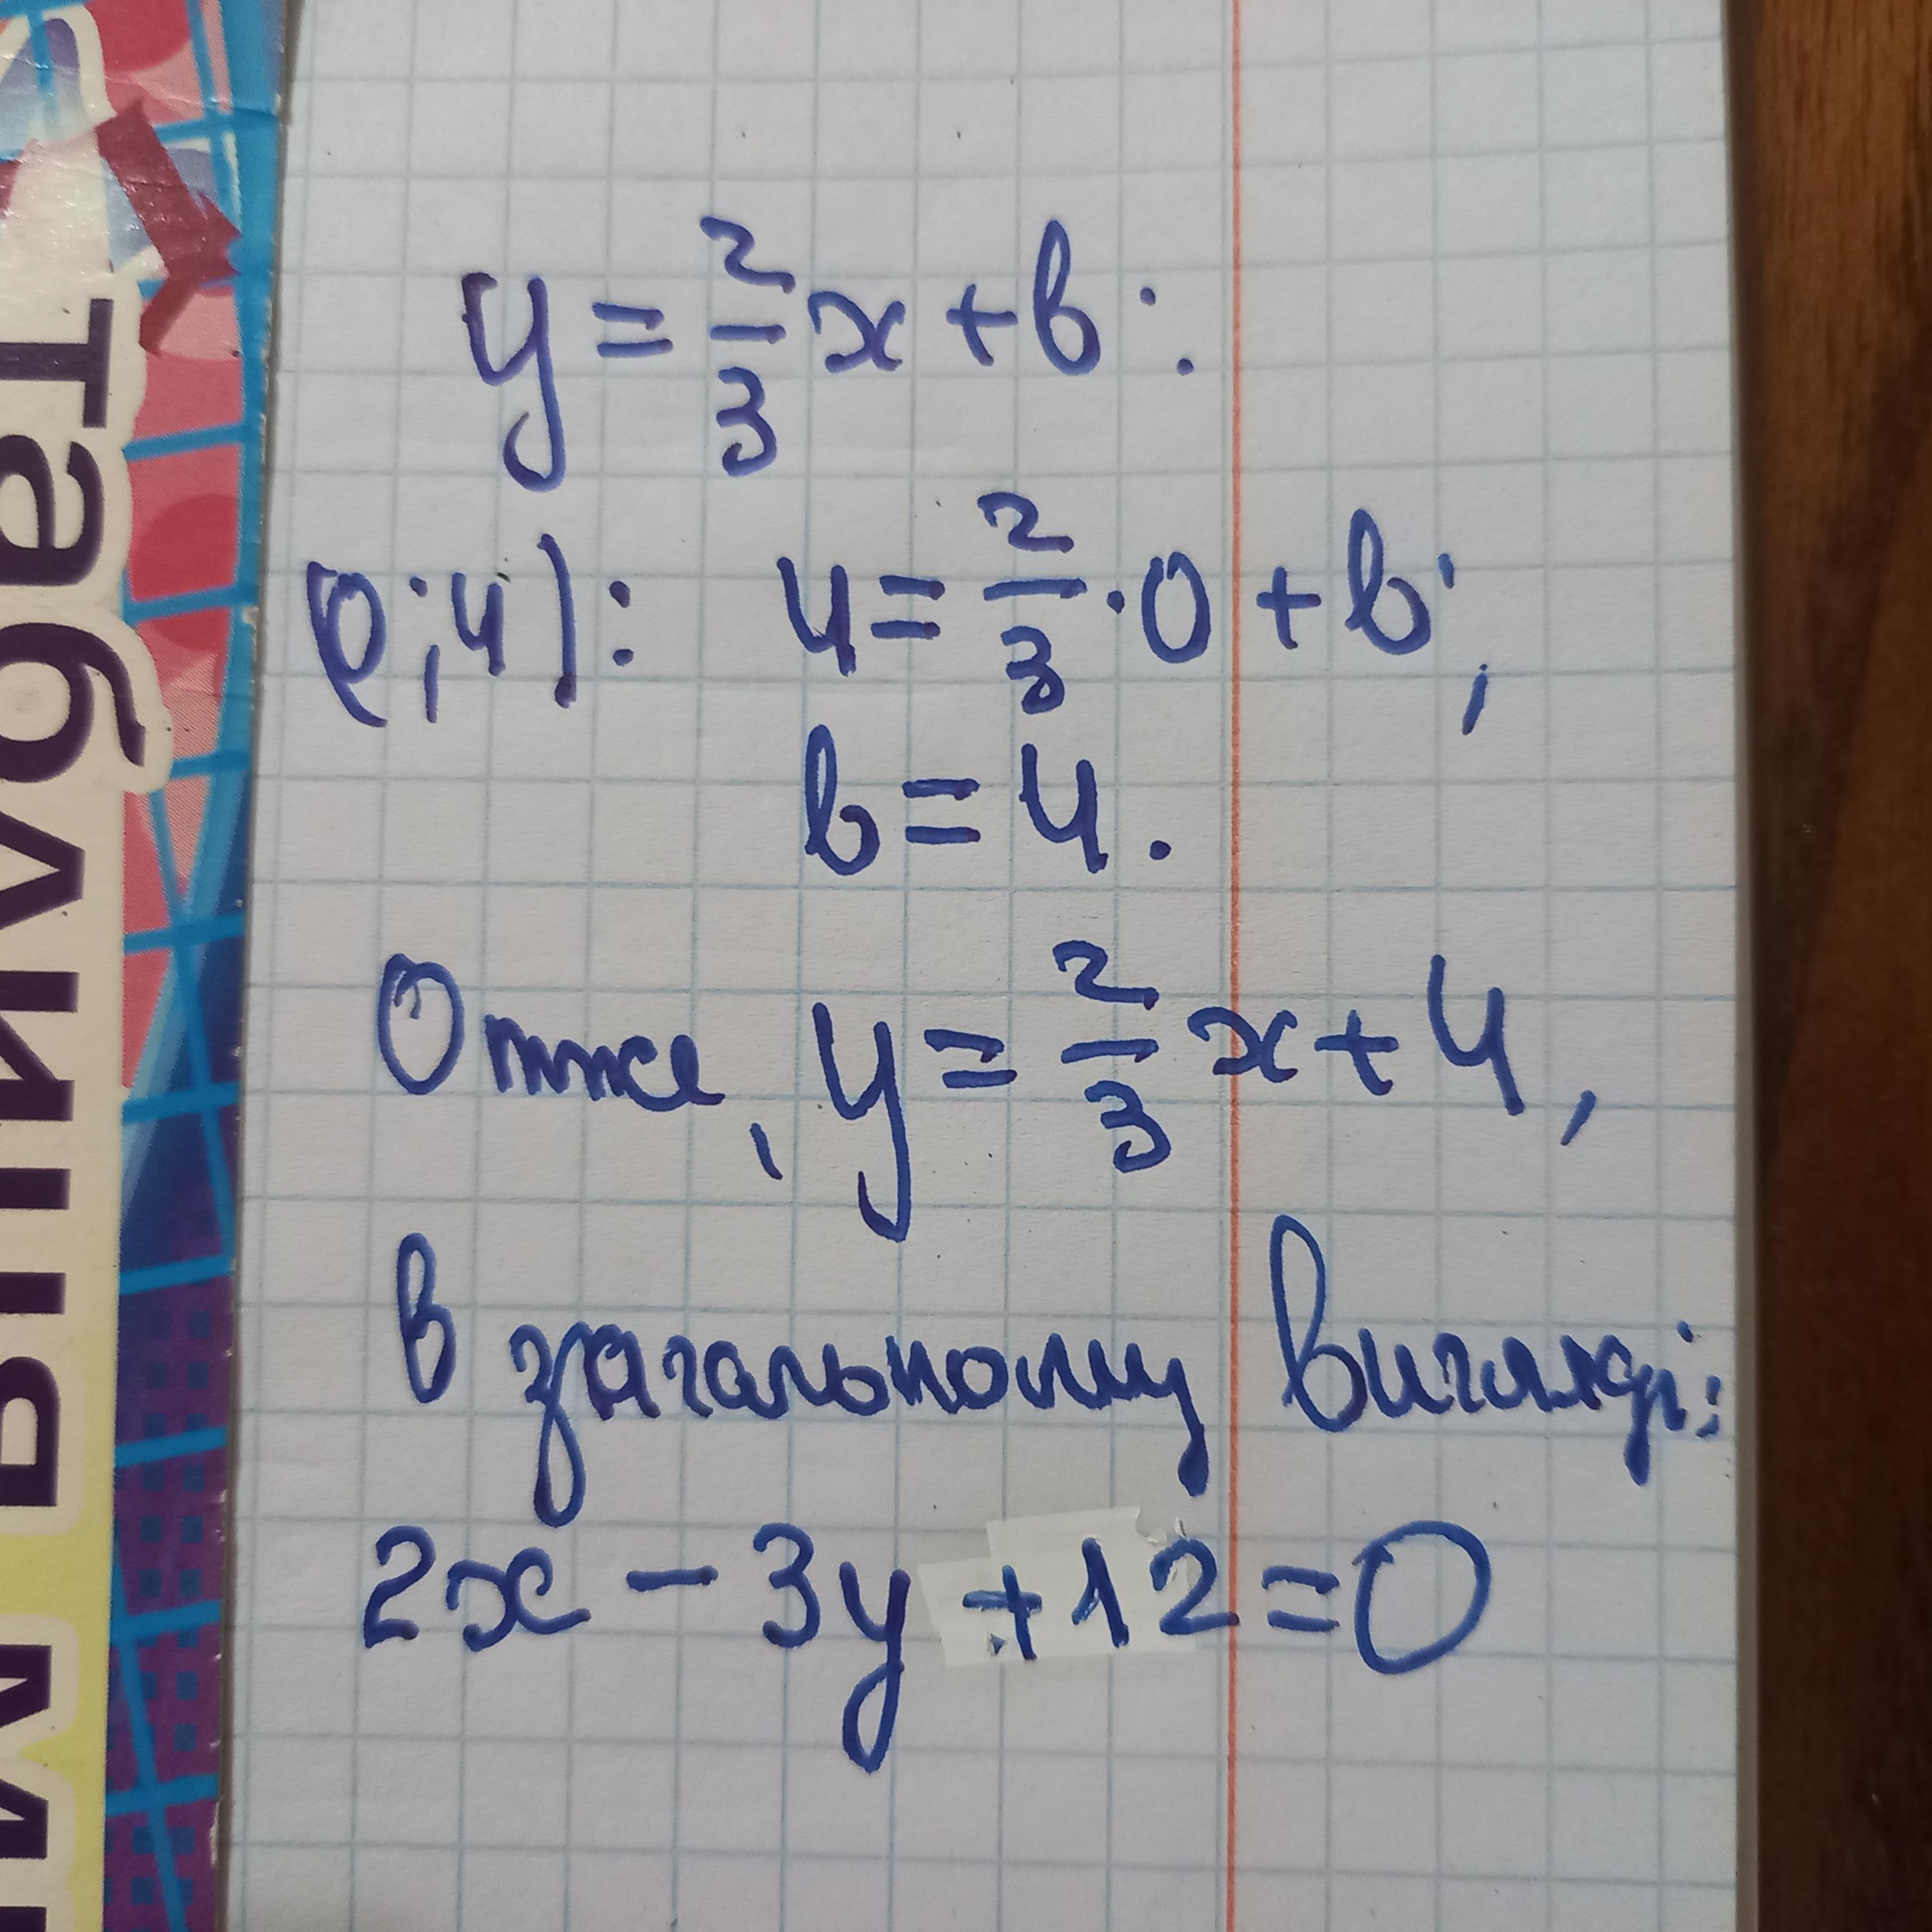 y = 2/3 x + b:
(0;4): 4 = 2/3 · 0 + b;
b = 4.
Отже, y = 2/3 x + 4,
в загальному вигляді:
2x - 3y + 12 = 0
Табл